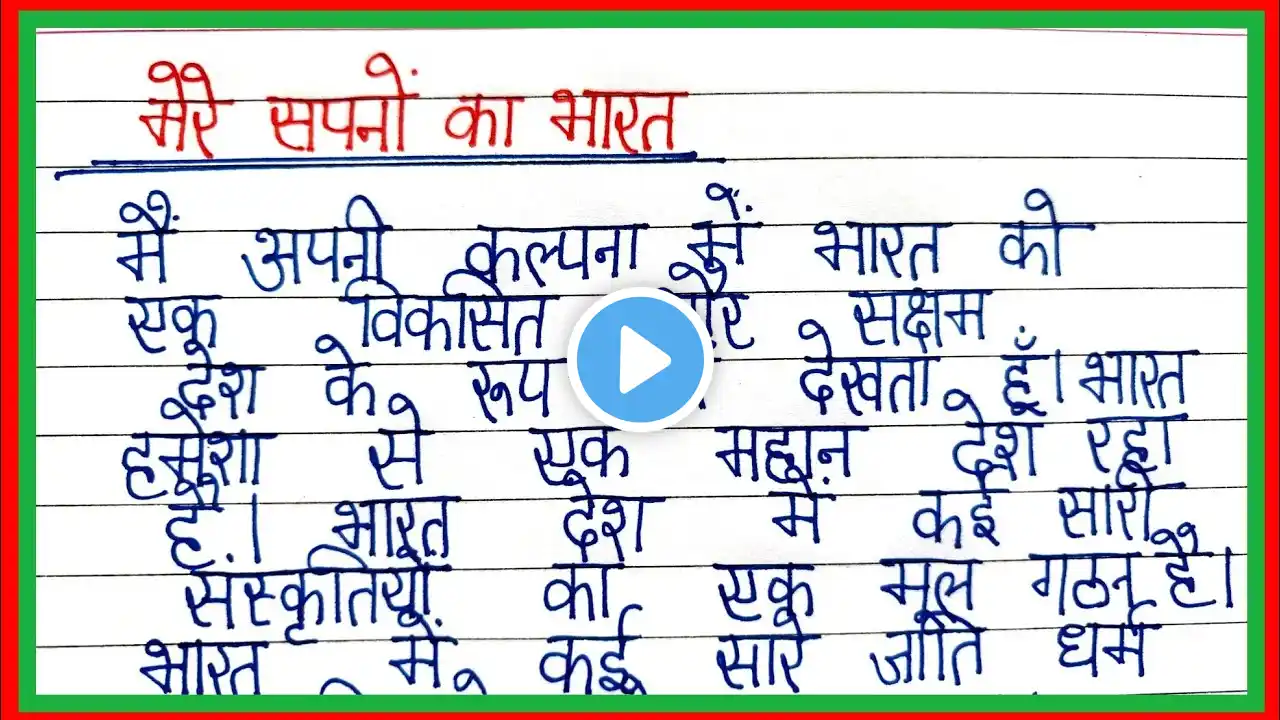 मेरे सपनों का भारत
मैं अपनी कल्पना में भारत को
एक विकसित सक्षम
देश के रूप देखता हूँ। भारत
हमेशा से एक महान देश रहा
है। भारत देश में कई सारी
संस्कृतियों का एक मूल गठन है।
भारत में कई सारे जाति धर्म